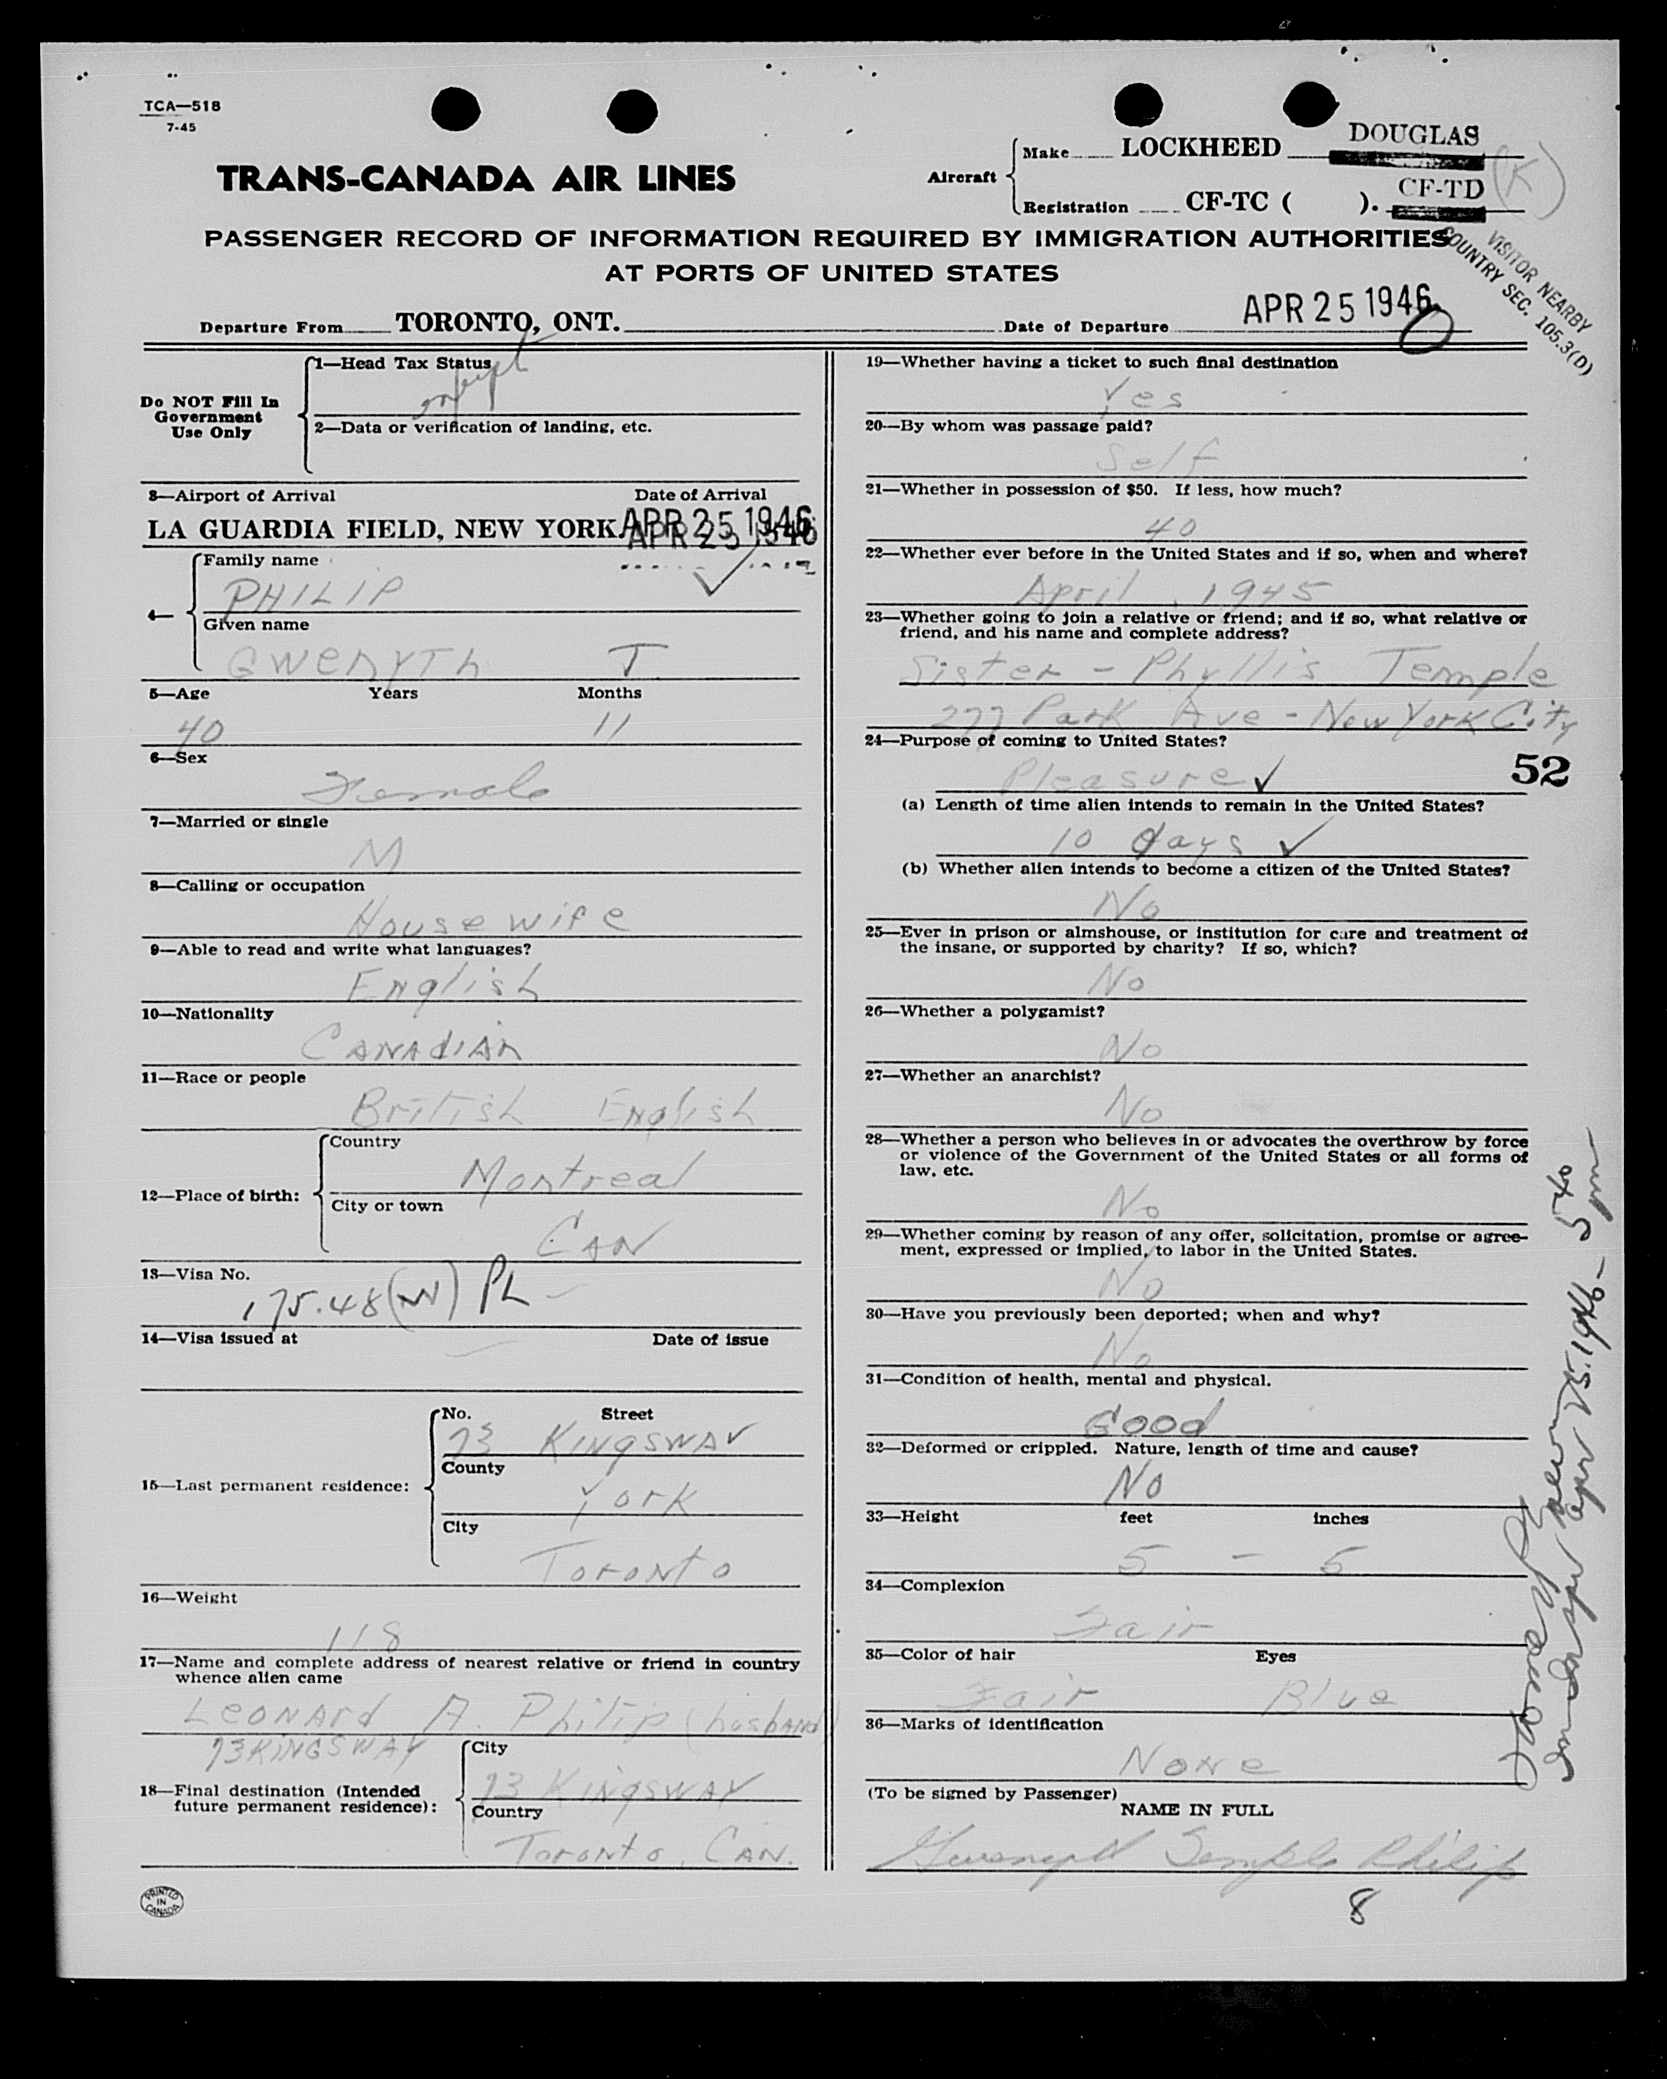 TCA—518
7-45
TRANS-CANADA AIR LINES
Aircraft
Make LOCKHEED DOUGLAS
Registration CF-TC ( ). CF-TD (K)
PASSENGER RECORD OF INFORMATION REQUIRED BY IMMIGRATION AUTHORITIES
AT PORTS OF UNITED STATES
VISITOR NEARBY
COUNTRY SEC. 105.3(D)
Departure From TORONTO, ONT. Date of Departure APR 25 1946
Do NOT Fill In
Government
Use Only
1—Head Tax Status
2—Data or verification of landing, etc.
3—Airport of Arrival Date of Arrival
LA GUARDIA FIELD, NEW YORK. APR 25 1946
APR 25 1946
4—
Family name
PHILIP
Given name
GWENYTH T
5—Age Years Months
40 11
6—Sex
Female
7—Married or single
M
8—Calling or occupation
Housewife
9—Able to read and write what languages?
English
10—Nationality
CANADIAN
11—Race or people
British English
12—Place of birth:
Country
Montreal
City or town
CAN
13—Visa No.
175.48(W) PL
14—Visa issued at Date of issue
15—Last permanent residence:
No. Street
73 KINGSWAY
County
York
City
Toronto
16—Weight
118
17—Name and complete address of nearest relative or friend in country
whence alien came
LEONARD A. Philip (husband)
73 KINGSWAY
18—Final destination (Intended
future permanent residence):
City
73 KINGSWAY
Country
Toronto, CAN.
PRINTED
IN
CANADA
19—Whether having a ticket to such final destination
Yes
20—By whom was passage paid?
Self
21—Whether in possession of $50. If less, how much?
40
22—Whether ever before in the United States and if so, when and where?
April, 1945
23—Whether going to join a relative or friend; and if so, what relative or
friend, and his name and complete address?
Sister - Phyllis Temple
277 Park Ave - New York City
24—Purpose of coming to United States?
Pleasure ✓
52
(a) Length of time alien intends to remain in the United States?
10 days ✓
(b) Whether alien intends to become a citizen of the United States?
No
25—Ever in prison or almshouse, or institution for care and treatment of
the insane, or supported by charity? If so, which?
No
26—Whether a polygamist?
No
27—Whether an anarchist?
No
28—Whether a person who believes in or advocates the overthrow by force
or violence of the Government of the United States or all forms of
law, etc.
No
29—Whether coming by reason of any offer, solicitation, promise or agree-
ment, expressed or implied, to labor in the United States.
No
30—Have you previously been deported; when and why?
No
31—Condition of health, mental and physical.
Good
32—Deformed or crippled. Nature, length of time and cause?
No
33—Height feet inches
5 - 5
34—Complexion
Fair
35—Color of hair Eyes
Fair Blue
36—Marks of identification
None
(To be signed by Passenger)
NAME IN FULL
Gwenyth Temple Philip
8
Apr 25. 1946 - 5 40 pm